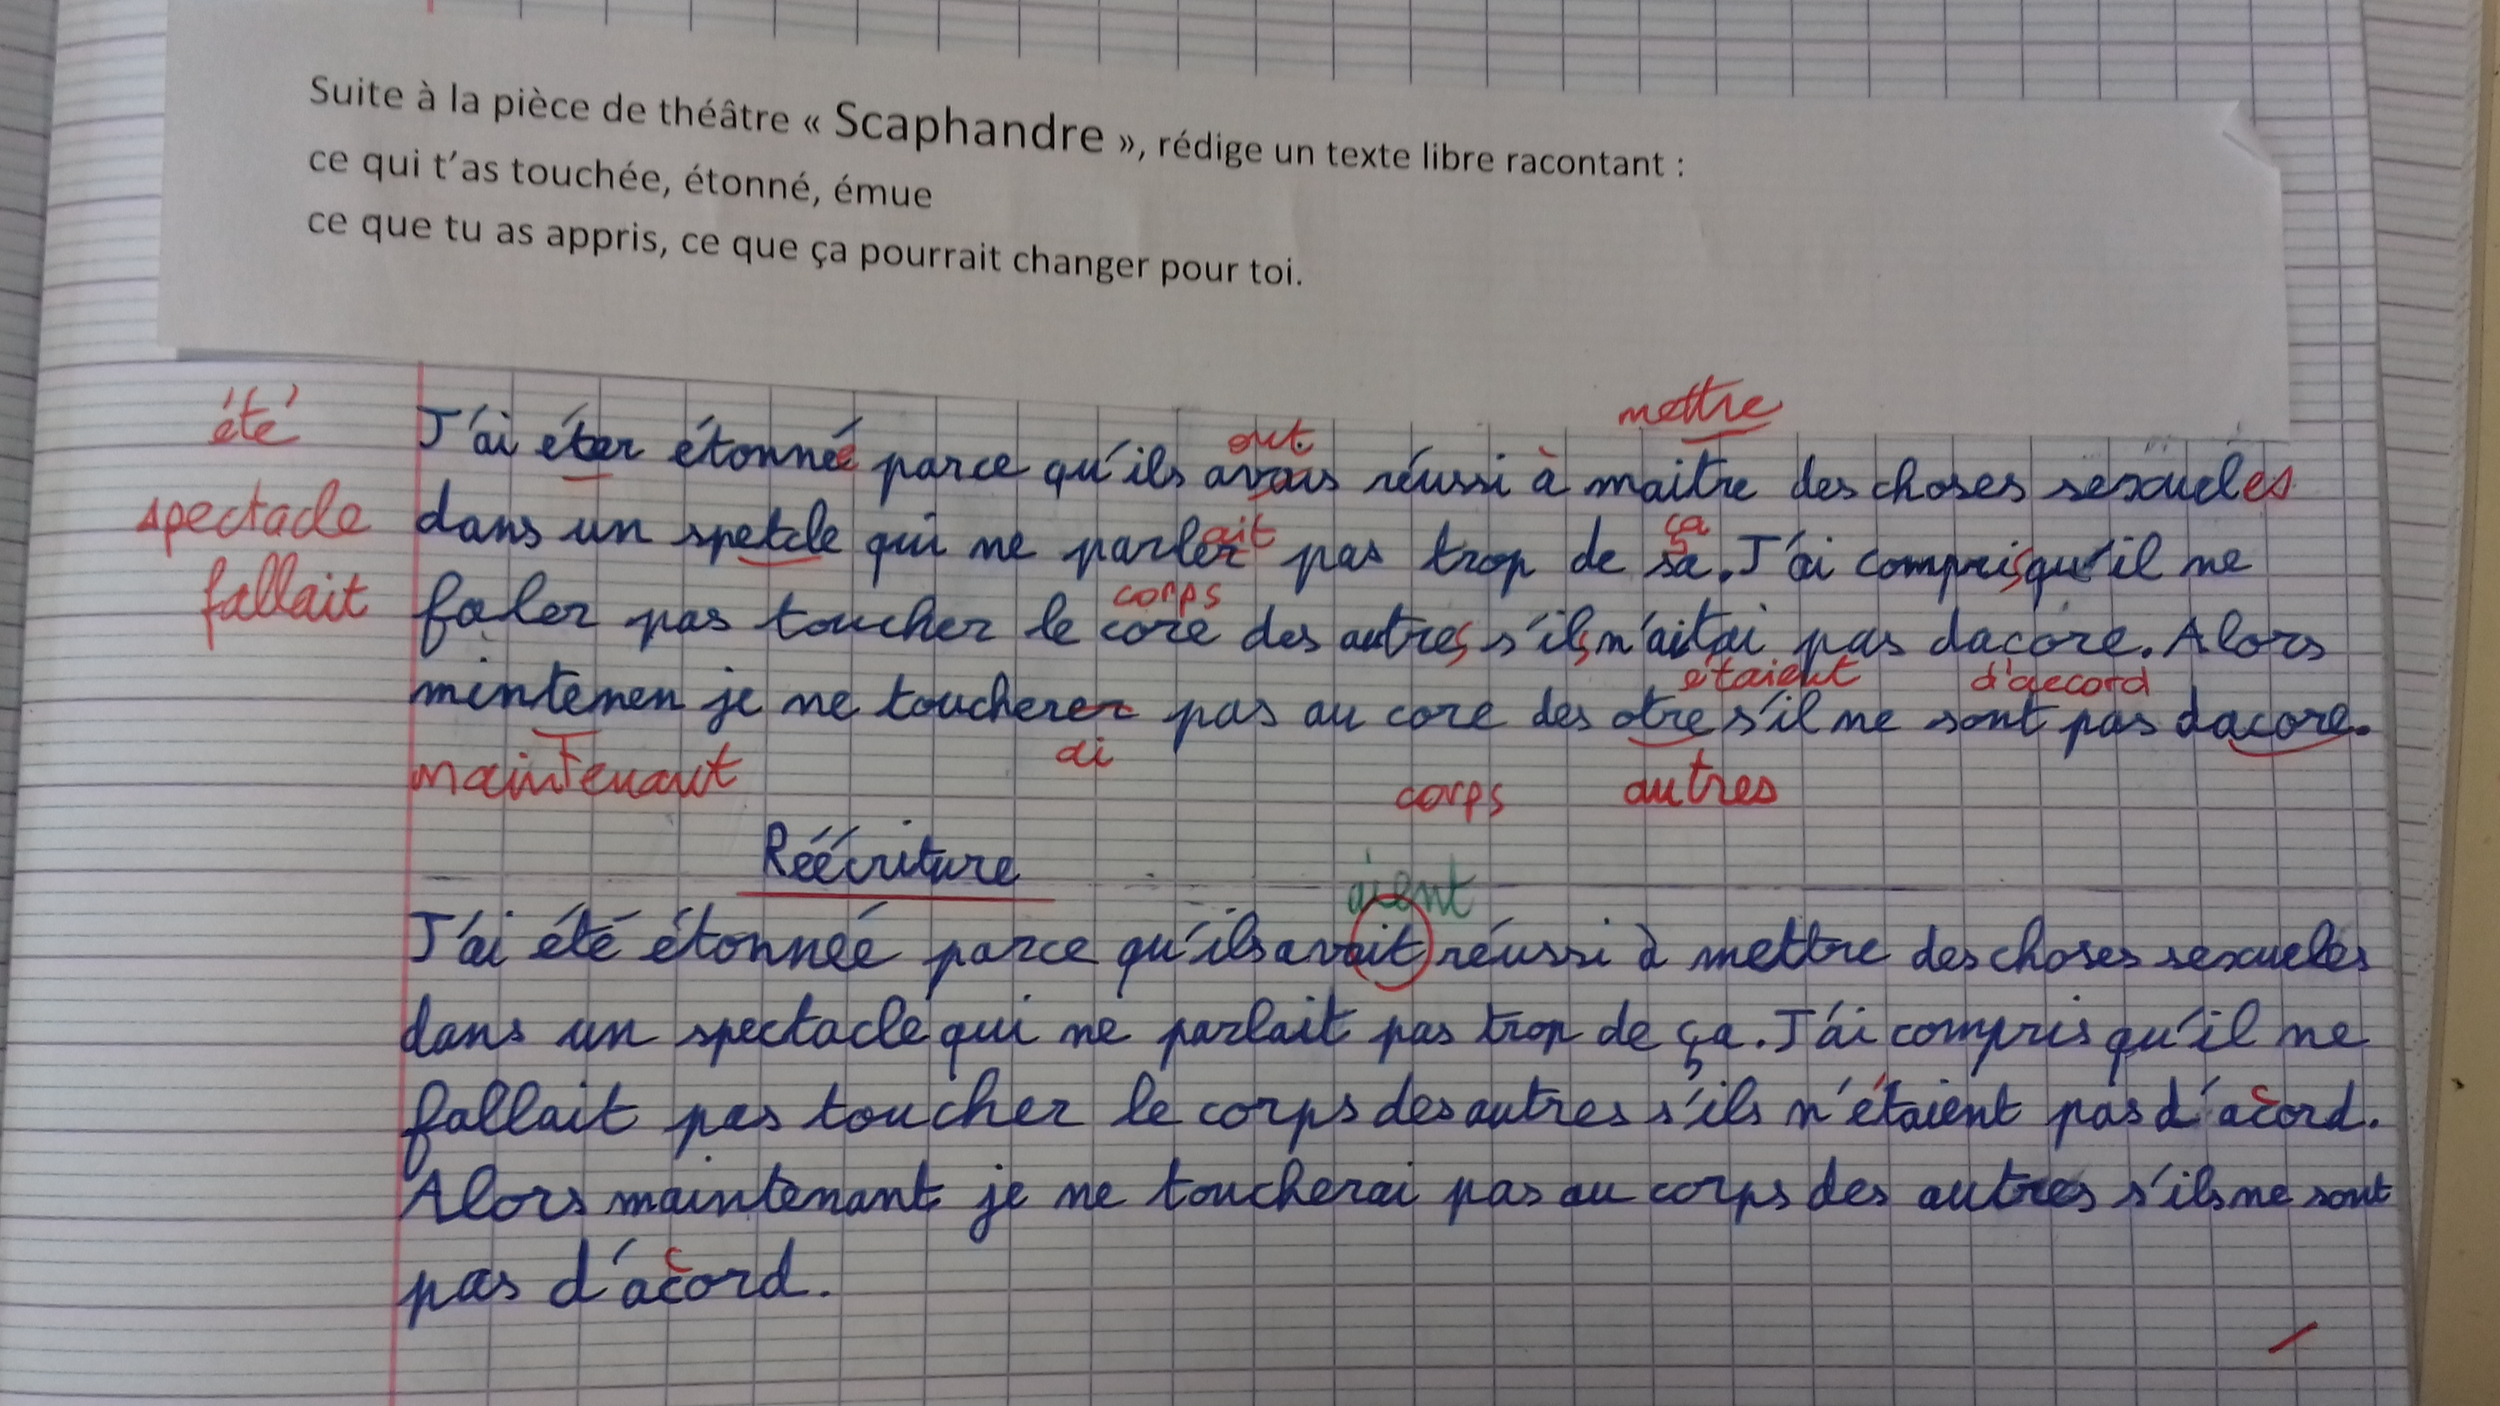 Suite à la pièce de théâtre « Scaphandre », rédige un texte libre racontant :
ce qui t'as touchée, étonné, émue
ce que tu as appris, ce que ça pourrait changer pour toi.
mettre
été
ont
J'ai éter étonnée parce qu'ils avais réussi à maitre des choses sexueles
spectacle
ait
ça
dans un spetcle qui me parler pas trop de sa. J'ai compris qu'il ne
fallait
corps
faler pas toucher le core des autres s'ils n'aitai pas dacore. Alors
étaient d'accord
mintenen je ne toucherer pas au core des otre s'il ne sont pas dacore.
maintenant
ai
corps
autres
Réécriture
aient
J'ai été étonnée parce qu'ils avait réussi à mettre des choses sexueles
dans un spectacle qui ne parlait pas trop de ça. J'ai compris qu'il ne
fallait pas toucher le corps des autres s'ils n'étaient pas d'accord.
Alors maintenant je ne toucherai pas au corps des autres s'ils ne sont
pas d'accord.